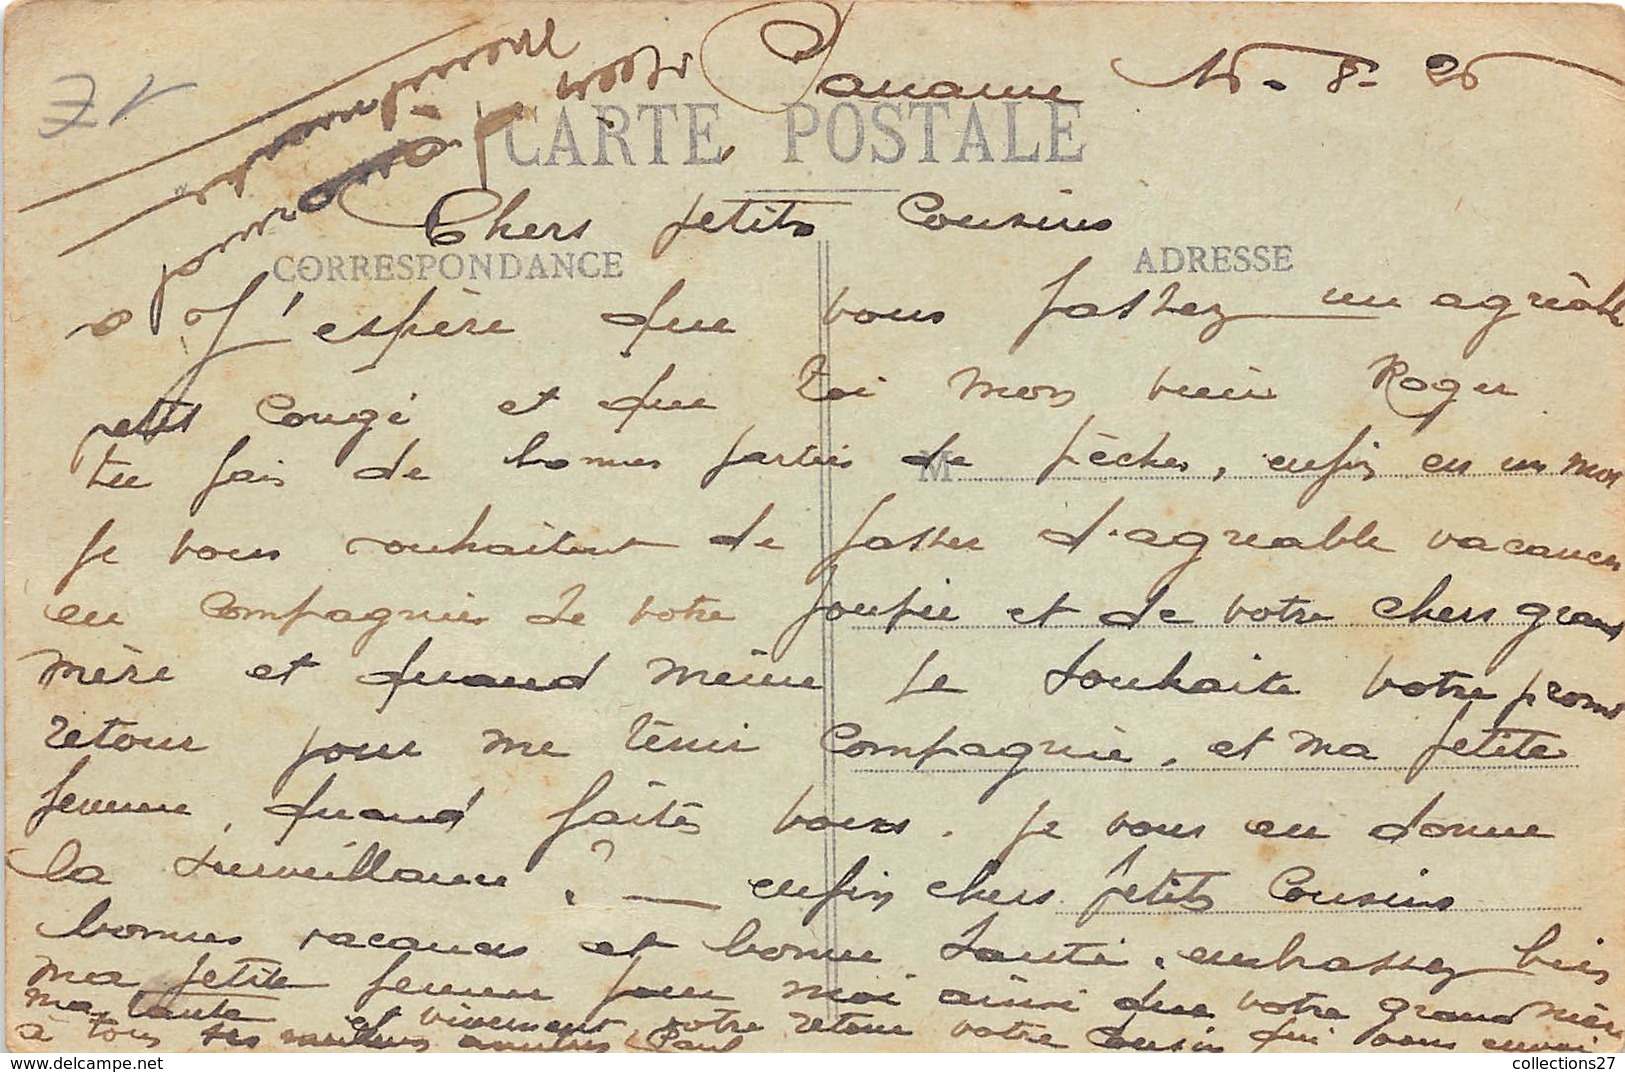 Paname 16-8-26
CARTE POSTALE
Chers petits Cousins
CORRESPONDANCE
ADRESSE
J'espère que vous passez un agréable
petit Congé et que toi mon vieu Roger
tu fais de bonnes parties de pêches, enfin en un mot
M
je vous souhaitent de passer d'agreable vacances
en Compagnies de votre et de votre chers grand
mère et quand même je souhaite votre prompt
retour pour me tenir Compagnie, et ma petite
femme, quand faites vous. je vous en donne
la surveillance ? — enfin chers petits Cousins
bonnes vacances et bonne santé, embrassez bien
ma petite femme pour moi ainsi que votre grand mère
ma tante et vivement votre retour votre Cousin qui vous envoi
à tous ses meilleurs amitiés Paul
collections27